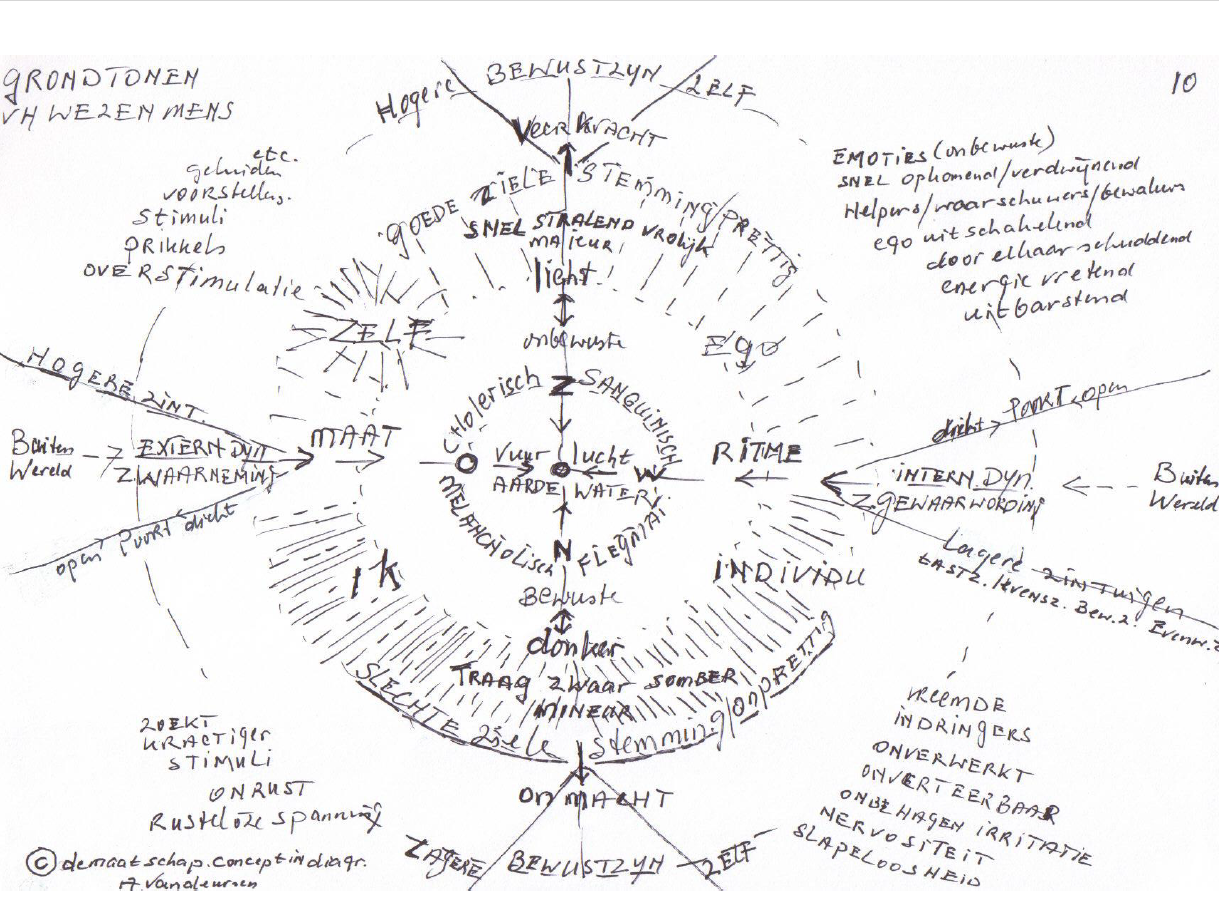 GRONDTONEN
VH WEZEN MENS
10
Hogere BEWUSTZYN ZELF
VeerKRACHT
GOEDE ZIELE STEMMING/PRETTIG
SNEL STRALEND VROLIJK
MAJEUR
licht
onbewuste
etc.
geluiden
voorstellers.
Stimuli
PRIKKELS
OVERStimulatie
EMOTIES (onbewuste)
SNEL opkomend/verdwijnend
Helpers/waarschuwers/bewakers
ego uitschakelend
door elkaar schuddend
energie vretend
uitbarstend
ZELF
Ego
HOGERE ZINT.
Buiten
Wereld
EXTERN DYN
Z.WAARNEMING
open POORT dicht
MAAT
CHOLERISCH
SANGUINISCH
MELANCHOLISCH
FLEGMAT
Z
O
W
N
vuur lucht
AARDE WATER
RITME
dicht POORT open
INTERN. DYN.
Z GEWAARWORDING
Buiten
Wereld
Lagere ZINTUIGEN
TASTZ. levensz. Bew.z. Evenw.z
ik
INDIVIDU
Bewuste
donker
TRAAG ZWAAR SOMBER
MINEUR
SLECHTE Ziele Stemming/onPRETTIG
ONMACHT
LAGERE BEWUSTZYN ZELF
ZOEKT
KRACTIGER
STIMULI
ONRUST
Rusteloze spanning
VREEMDE
INDRINGERS
ONVERWERKT
ONVERTEERBAAR
ONBEHAGEN IRRITATIE
NERVOSITEIT
SLAPELOOSHEID
© demaatschap.conceptindiagr.
A.vandeursen